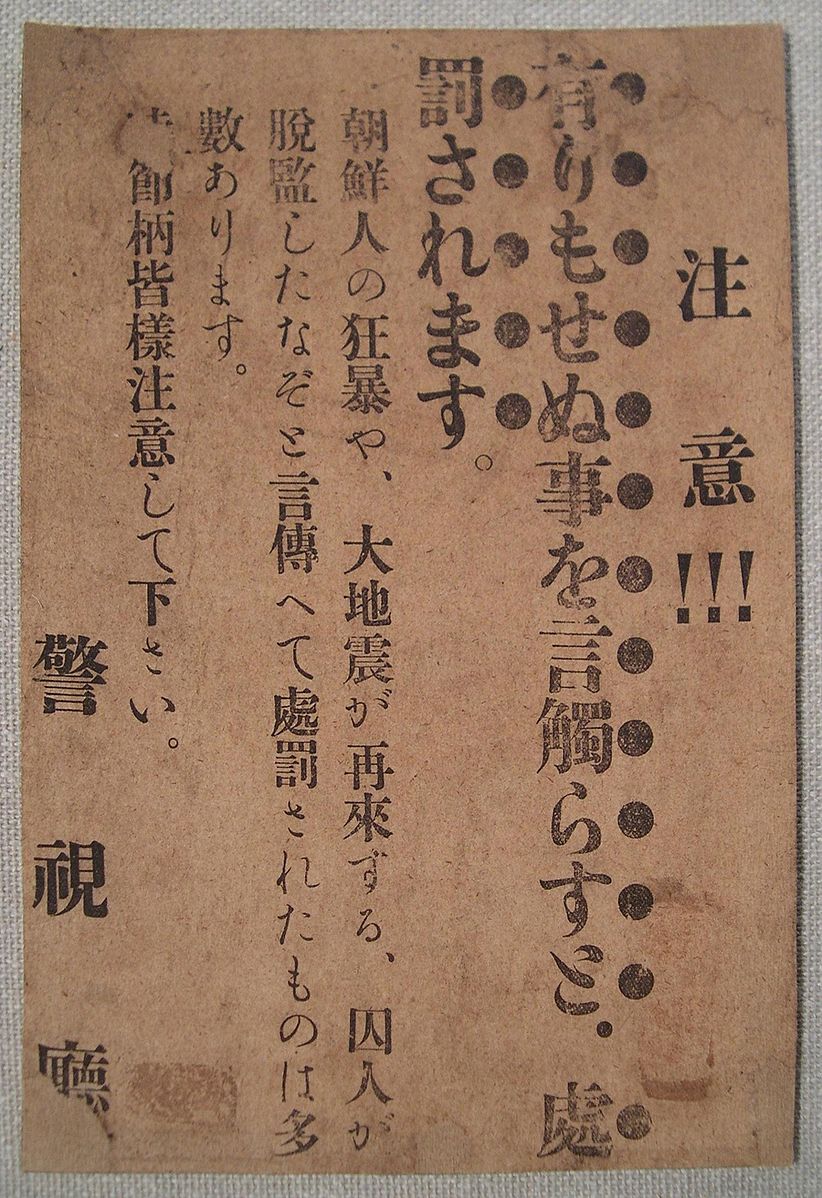 注意!!!
有りもせぬ事を言觸らすと、處
罰されます。
朝鮮人の狂暴や、大地震が再來する、囚人が
脫監したなぞと言傳へて處罰されたものは多
數あります。
節柄皆樣注意して下さい。
警視廳